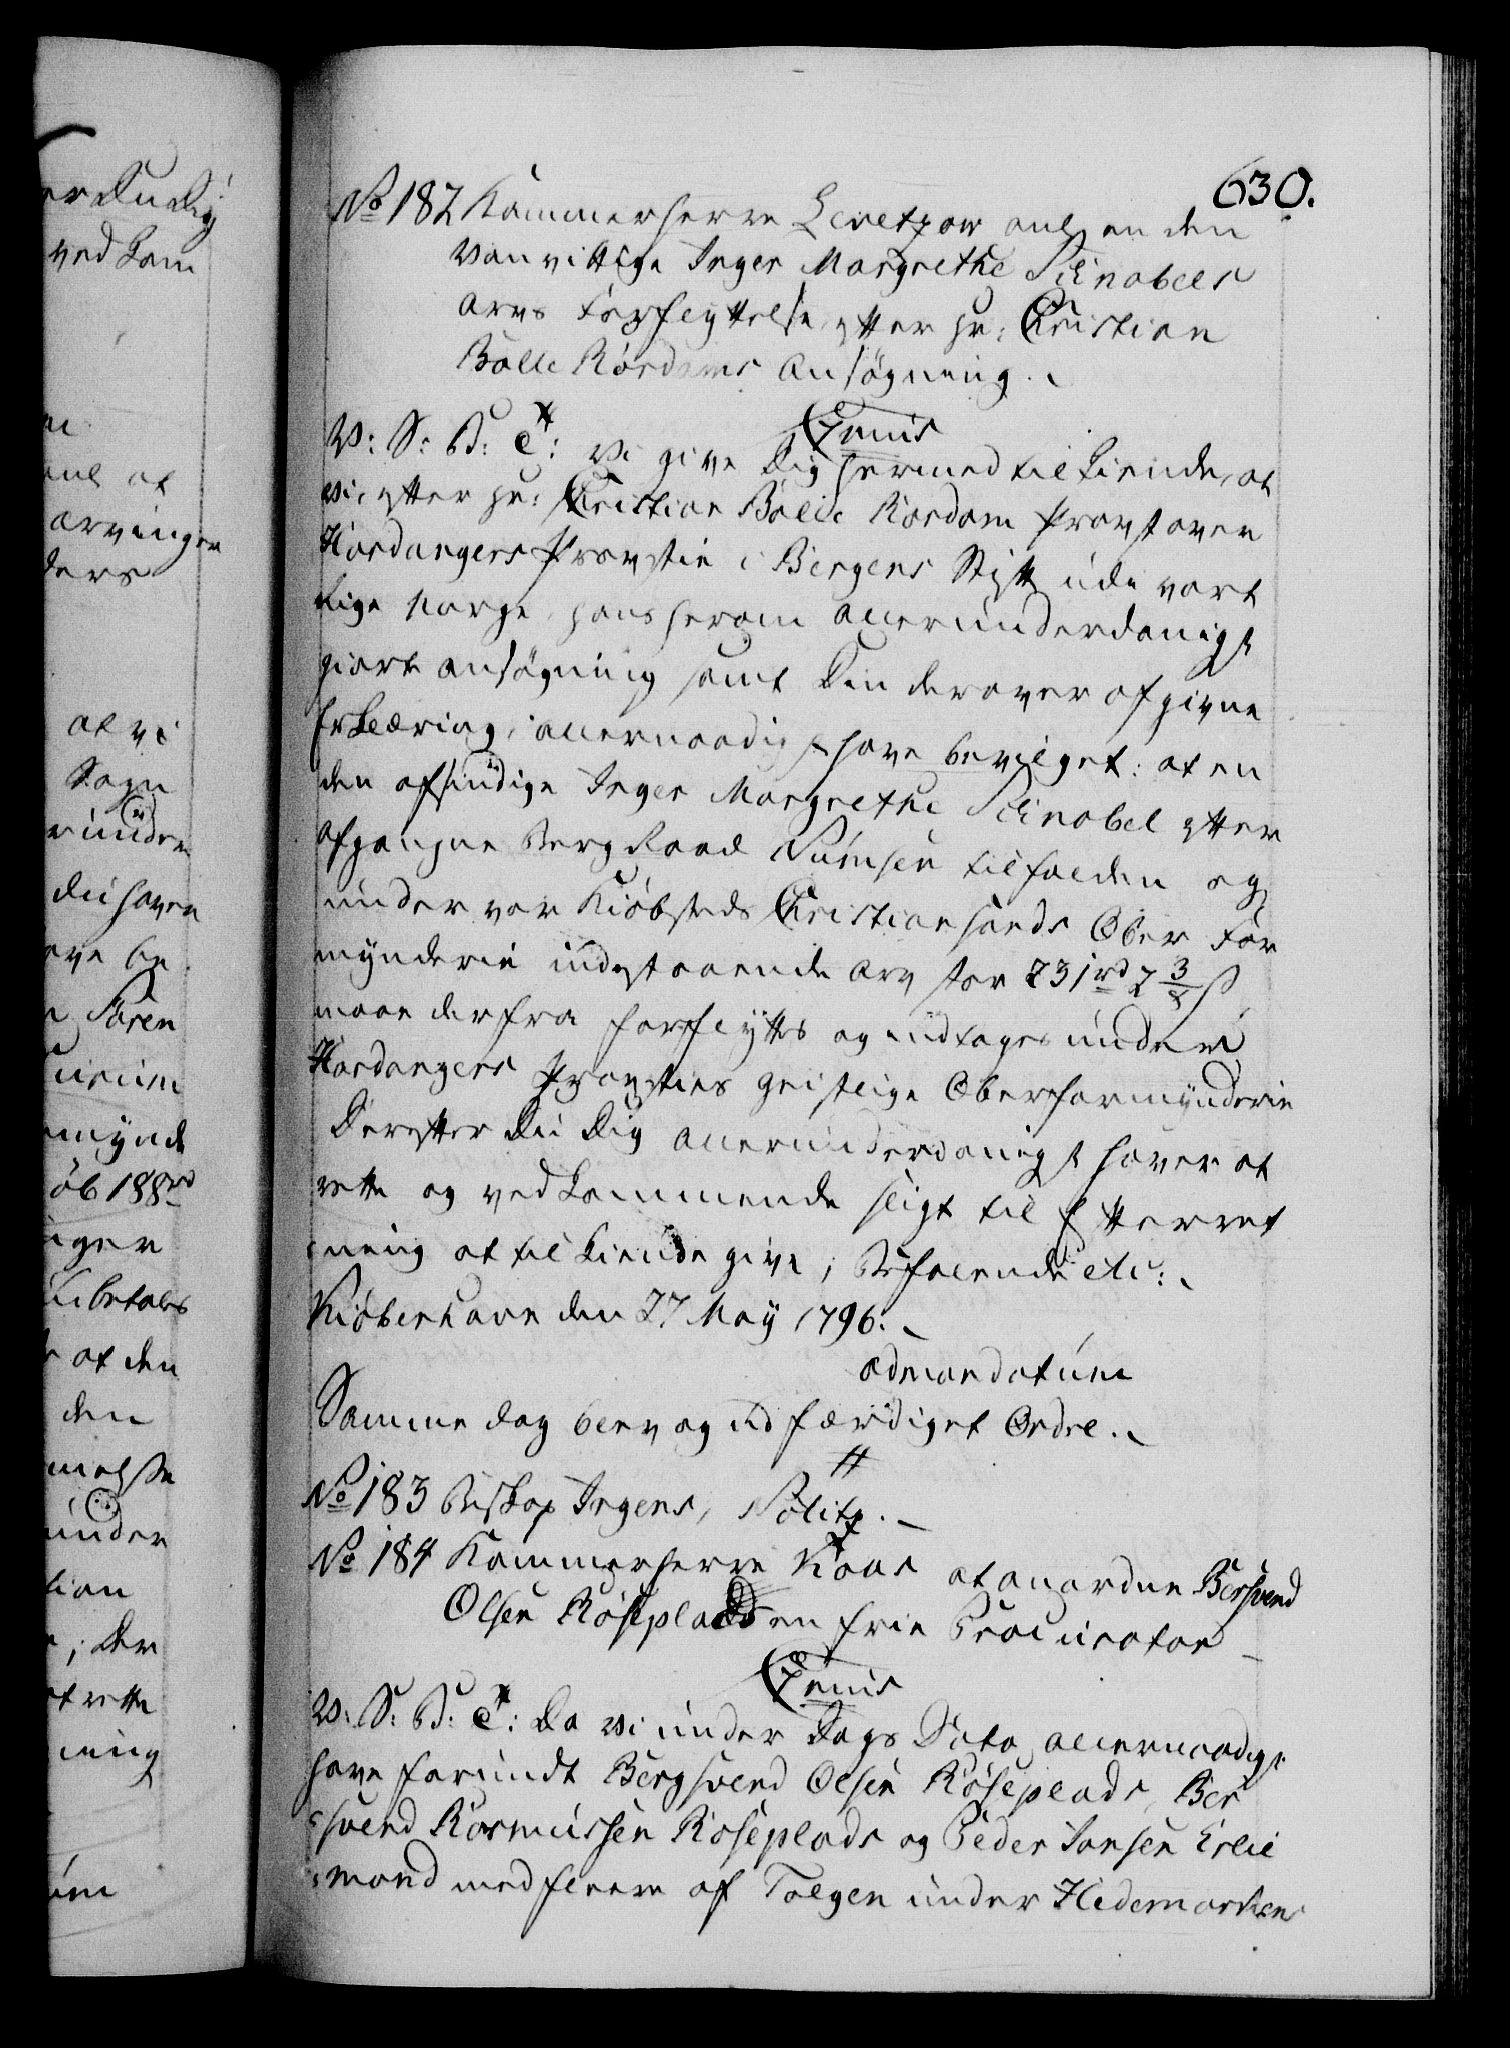 630.
No 182 Kammerherre Levetzow anl: en den
vanvittige Inger Margrethe Schnabels
Arvs Forflyttelse, efter Hr: Christian
Bolle Rördams Ansøgning.
Gratis
V: S: G: T: Vi give Dig hermed tilkiende, at
vi, efter Hr: Christian Bolle Rördam Provst over
Hardangers Provstie i Bergens Stift udi vort
Rige Norge, hans herom allerunderdanigst
giorte ansøgning samt Din derover afgivne
Erklæring, allernaadigst have bevilget: at en
den afsindige Inger Margrethe Schnabel efter
afgangne Berg Raad Sumsen tilfalden og
under vor Kiöbsteds Christiansands Ober For
mynderie indestaaende Arv stor 231 rd 2 3/8 ß
maae derfra forflyttes og indtages under
Hardangers Provsties geistlige Oberformynderie
Derefter Du Dig allerunderdanigst haver at
rette og vedkommende sligt til Efterret
ning at tilkiende give, Befalende etc:
Kiöbenhavn den 27 May 1796.
ad mandatum
Samme dag blev og udfærdiget Ordre.
No 183 Biskop Irgens, Politz.
No 184 Kammerherre Kaas at anordne Bersvend
Olsen Röseplads en frie Procurator
Gratis
V: S: G: T: Da Vi under Dags Dato allernaadigst
have forundt Bergsvend Olsen Röseplads, Ber
svend Rasmussen Röseplads og Peder Jonsen Erlie
mand med flere af Tolgen under Hedemarkens